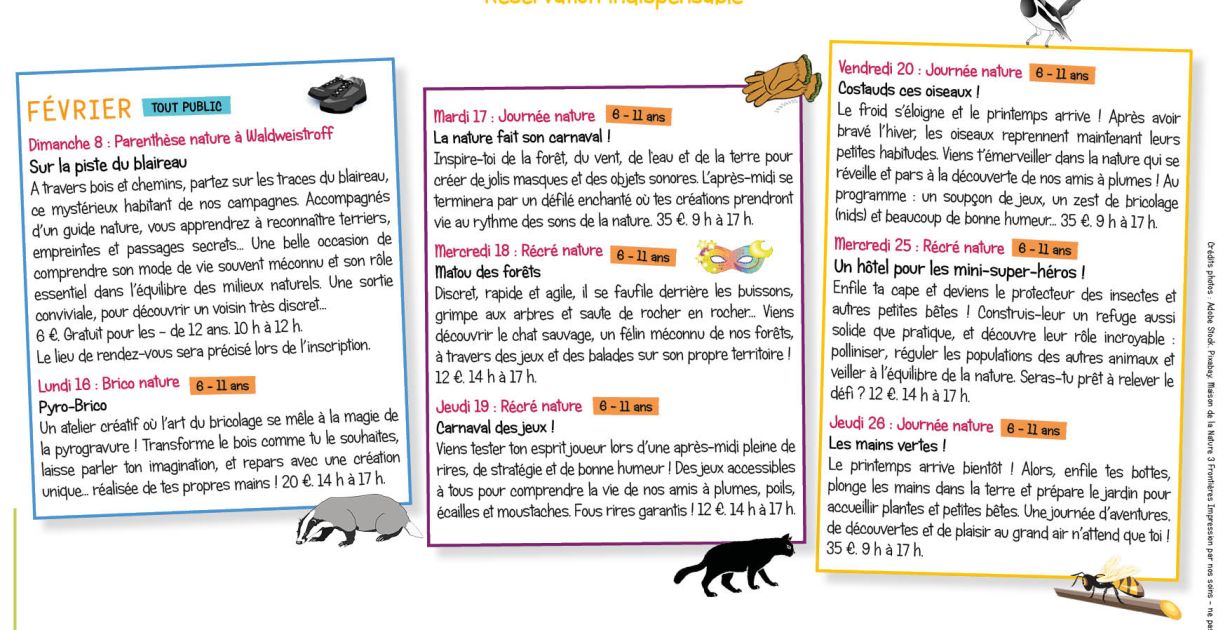 Réservation indispensable
FÉVRIER TOUT PUBLIC
Dimanche 8 : Parenthèse nature à Waldweistroff
Sur la piste du blaireau
A travers bois et chemins, partez sur les traces du blaireau,
ce mystérieux habitant de nos campagnes. Accompagnés
d'un guide nature, vous apprendrez à reconnaître terriers,
empreintes et passages secrets... Une belle occasion de
comprendre son mode de vie souvent méconnu et son rôle
essentiel dans l'équilibre des milieux naturels. Une sortie
conviviale, pour découvrir un voisin très discret...
6 €. Gratuit pour les - de 12 ans. 10 h à 12 h.
Le lieu de rendez-vous sera précisé lors de l'inscription.
Lundi 16 : Brico nature 6 - 11 ans
Pyro-Brico
Un atelier créatif où l'art du bricolage se mêle à la magie de
la pyrogravure ! Transforme le bois comme tu le souhaites,
laisse parler ton imagination, et repars avec une création
unique... réalisée de tes propres mains ! 20 €. 14 h à 17 h.
Mardi 17 : Journée nature 6 - 11 ans
La nature fait son carnaval !
Inspire-toi de la forêt, du vent, de l'eau et de la terre pour
créer de jolis masques et des objets sonores. L'après-midi se
terminera par un défilé enchanté où tes créations prendront
vie au rythme des sons de la nature. 35 €. 9 h à 17 h.
Mercredi 18 : Récré nature 6 - 11 ans
Matou des forêts
Discret, rapide et agile, il se faufile derrière les buissons,
grimpe aux arbres et saute de rocher en rocher... Viens
découvrir le chat sauvage, un félin méconnu de nos forêts,
à travers des jeux et des balades sur son propre territoire !
12 €. 14 h à 17 h.
Jeudi 19 : Récré nature 6 - 11 ans
Carnaval des jeux !
Viens tester ton esprit joueur lors d'une après-midi pleine de
rires, de stratégie et de bonne humeur ! Des jeux accessibles
à tous pour comprendre la vie de nos amis à plumes, poils,
écailles et moustaches. Fous rires garantis ! 12 €. 14 h à 17 h.
Vendredi 20 : Journée nature 6 - 11 ans
Costauds ces oiseaux !
Le froid s'éloigne et le printemps arrive ! Après avoir
bravé l'hiver, les oiseaux reprennent maintenant leurs
petites habitudes. Viens t'émerveiller dans la nature qui se
réveille et pars à la découverte de nos amis à plumes ! Au
programme : un soupçon de jeux, un zest de bricolage
(nids) et beaucoup de bonne humeur... 35 €. 9 h à 17 h.
Mercredi 25 : Récré nature 6 - 11 ans
Un hôtel pour les mini-super-héros !
Enfile ta cape et deviens le protecteur des insectes et
autres petites bêtes ! Construis-leur un refuge aussi
solide que pratique, et découvre leur rôle incroyable :
polliniser, réguler les populations des autres animaux et
veiller à l'équilibre de la nature. Seras-tu prêt à relever le
défi ? 12 €. 14 h à 17 h.
Jeudi 26 : Journée nature 6 - 11 ans
Les mains vertes !
Le printemps arrive bientôt ! Alors, enfile tes bottes,
plonge les mains dans la terre et prépare le jardin pour
accueillir plantes et petites bêtes. Une journée d'aventures,
de découvertes et de plaisir au grand air n'attend que toi !
35 €. 9 h à 17 h.
Crédits photos : Adobe Stock, Pixabay, Maison de la Nature 3 Frontières Impression par nos soins - ne pas